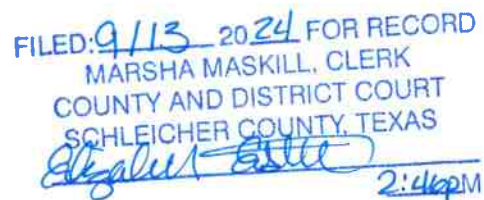 FILED: 9/13 2024 FOR RECORD
MARSHA MASKILL, CLERK
COUNTY AND DISTRICT COURT
SCHLEICHER COUNTY, TEXAS
Elizabeth
2:46PM